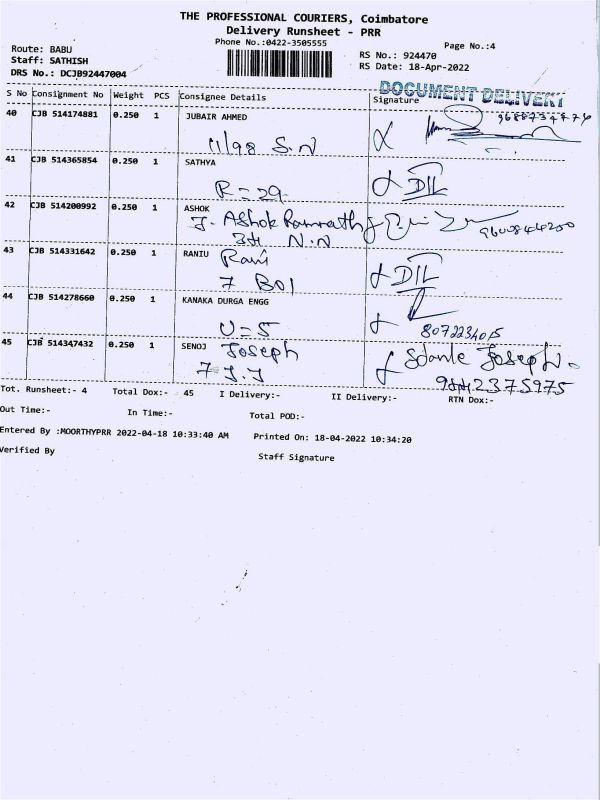 THE PROFESSIONAL COURIERS, Coimbatore
Delivery Runsheet - PRR
Phone No.:0422-3505555
Page No.:4
Route: BABU
Staff: SATHISH
DRS No.: DCJB92447004
RS No.: 924470
RS Date: 18-Apr-2022
DOCUMENT DELIVERY
S No Consignment No Weight PCS Consignee Details Signature
40 CJB 514174881 0.250 1 JUBAIR AHMED
11/98 S.N
41 CJB 514365854 0.250 1 SATHYA
R=29 D/L
42 CJB 514200992 0.250 1 ASHOK
J. Ashok Ramnath
3H N.N
43 CJB 514331642 0.250 1 RANIU
Rani
7 BOI D/L
44 CJB 514278660 0.250 1 KANAKA DURGA ENGG
U=5
45 CJB 514347432 0.250 1 SENOJ
Joseph Joseph
7 J.J
Tot. Runsheet:- 4 Total Dox:- 45 I Delivery:- II Delivery:- RTN Dox:-
Out Time:- In Time:- Total POD:-
Entered By :MOORTHYPRR 2022-04-18 10:33:40 AM Printed On: 18-04-2022 10:34:20
Verified By Staff Signature